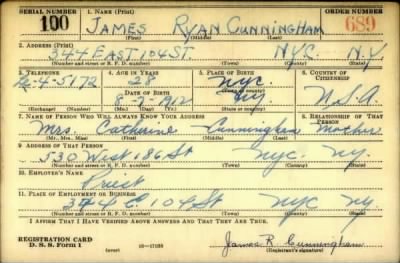 SERIAL NUMBER 1. NAME (Print) ORDER NUMBER
100 JAMES RYAN CUNNINGHAM 689
(First) (Middle) (Last)
2. ADDRESS (Print)
344 EAST 104 ST. N.Y.C. N.Y
(Number and street or R. F. D. number) (Town) (County) (State)
3. TELEPHONE 4. AGE IN YEARS 5. PLACE OF BIRTH 6. COUNTRY OF CITIZENSHIP
4-5172 28 NYC.
DATE OF BIRTH (Town or county)
1912 NY. U.S.A.
(Exchange) (Number) (Mo.) (Day) (Yr.) (State or country)
7. NAME OF PERSON WHO WILL ALWAYS KNOW YOUR ADDRESS 8. RELATIONSHIP OF THAT PERSON
Mrs. Catherine Cunningham Mother
(Mr., Mrs., Miss) (First) (Middle) (Last)
9. ADDRESS OF THAT PERSON
530 West 186 St NYC NY.
(Number and street or R. F. D. number) (Town) (County) (State)
10. EMPLOYER'S NAME
Priest
11. PLACE OF EMPLOYMENT OR BUSINESS
344 E 104 St NYC NY
(Number and street or R. F. D. number) (Town) (County) (State)
I AFFIRM THAT I HAVE VERIFIED ABOVE ANSWERS AND THAT THEY ARE TRUE.
REGISTRATION CARD
D. S. S. Form 1 (over) 16-17105 James R. Cunningham
(Registrant's signature)